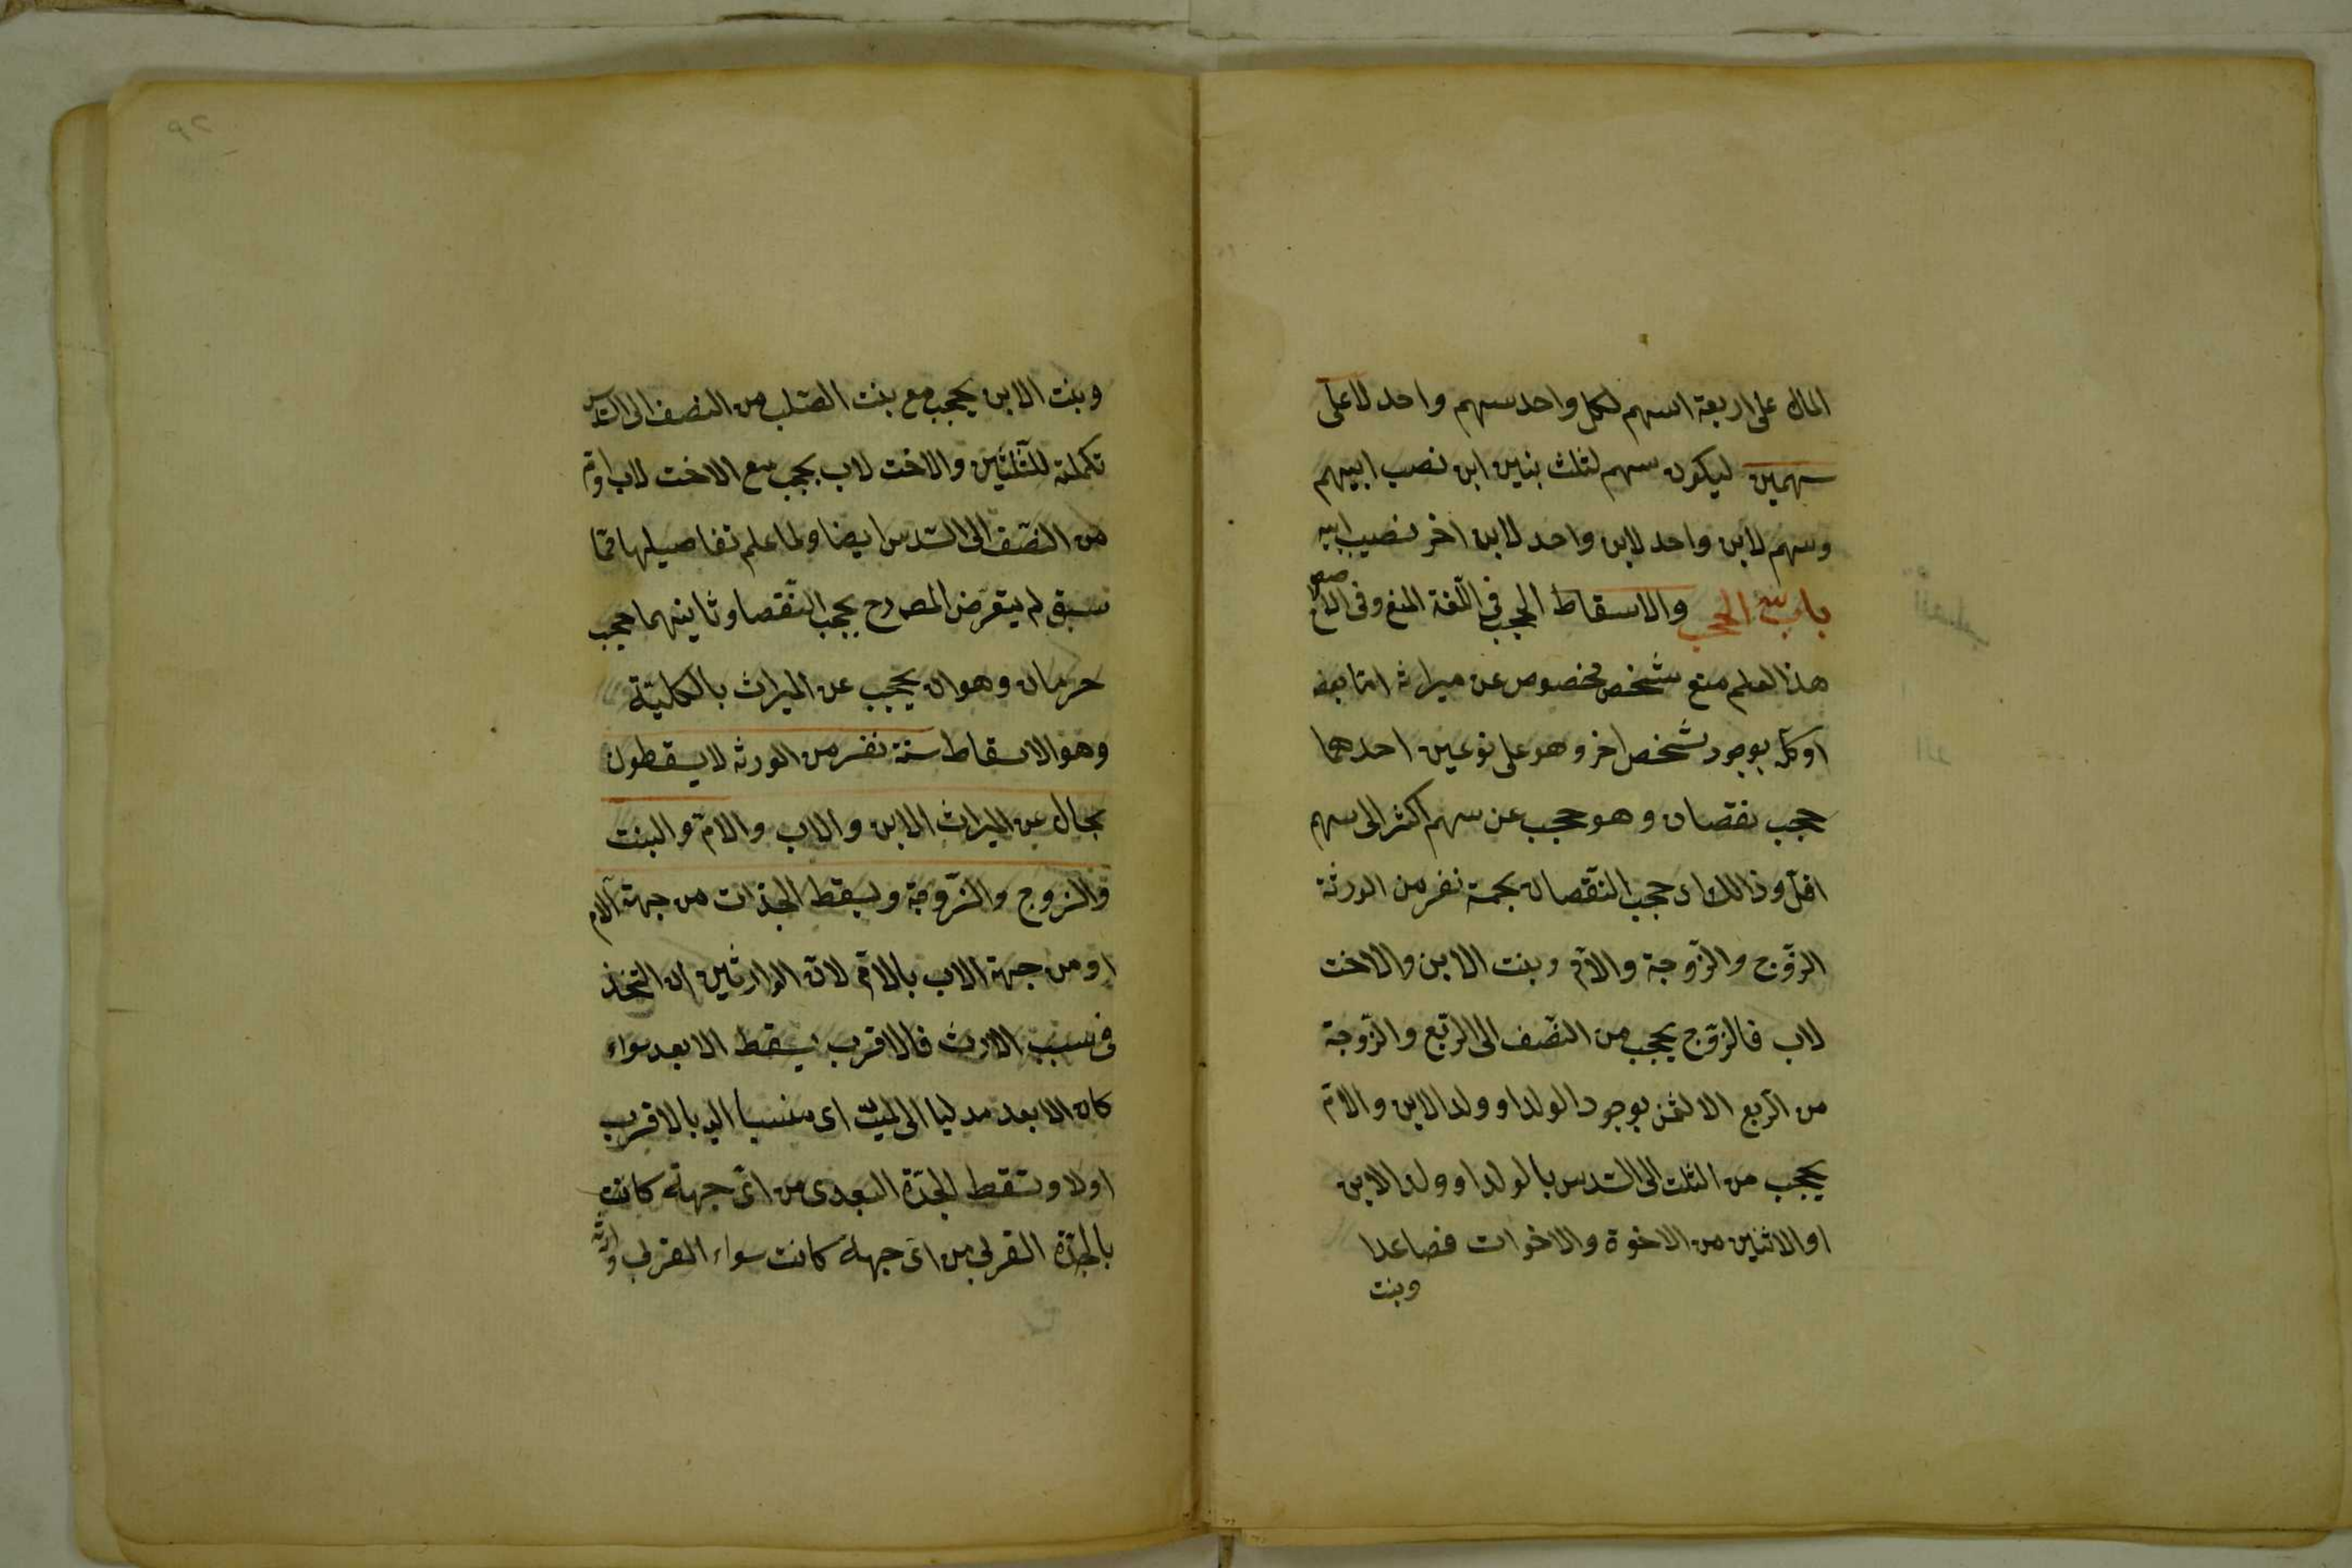 المال على اربعة اسهم لكل واحد سهم واحد لاعلى
سهمين ليكون سهم لثلث بنين ابن نصب ابيهم
وسهم لابن واحد لابن واحد لابن اخر نصيب ابيه
باب الحجب والاسقاط الحجب فى اللغة المنع وفى
هذا العلم منع شخص مخصوص عن ميراثه اما بعضه
او كله بوجود شخص اخر وهو على نوعين احدهما
حجب نقصان وهو حجب عن سهم اكثر الى سهم
اقل وذالك اى حجب النقصان بخمسة نفر من الورثة
الزّوج والزّوجة والامّ وبنت الابن والاخت
لاب فالزّوج يحجب من النّصف الى الرّبع والزّوجة
من الرّبع الا لثمن بوجود الولد او ولد الابن والامّ
يحجب من الثلث الى السّدس بالولد او ولد الابن
او الاثنين من الاخوة والاخوات فصاعدا
وبنت
٩٢
وبنت الابن يحجب مع بنت الصّلب من النصف الى السّدس
تكملة للثّلثين والاخت لاب يحجب مع الاخت لاب وامّ
من النّصف الى السّدس ايضا ولما علم تفاصيلها ممّا
سبق لم يتعرّض المصرح بحجب النّقصا وثانيهما حجب
حرمان وهو ان يحجب عن الميراث بالكليّة
وهو الاسقاط ستة نفر من الورثه لا يسقطون
بحال عن الميراث الابن والاب والامّ والبنت
والزوج والزّوجة ويسقط الجدّات من جهة الام
او من جهة الاب بالامّ لانّ الوارثين ان اتّحد
فى سبب الارث فالاقرب يسقط الابعد سواء
كان الابعد مدليا الى الميّت اى منسبا اليه بالاقرب
اولا وتسقط الجدّة البعدى من اىّ جهة كانت
بالجدّة القربى من اىّ جهة كانت سواء القربى وارثة